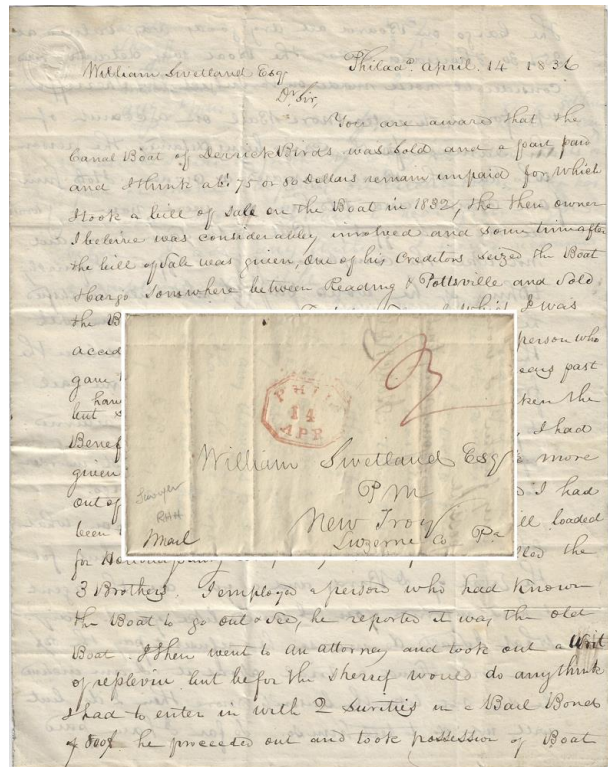 Philada. April. 14 1836
William Swetland Esqr
Dr. Sir,
You are aware that the
Canal Boat of Derrick Birds was sold and a part paid
and I think abt. 75 or 80 Dollars remain unpaid for which
I took a bill of Sale on the Boat in 1832, the then owner
I beleive was considerabley involved and some time after
the bill of Sale was given, one of his Creditors seized the Boat
& Cargo Somwhere between Reading & Pottsville and Sold
the B
which I was
accid
person who
gave
past
but
ken the
Benef
I had
given
more
out of
I had
been
ll loaded
for
lled the
3 Brothers. I employed a person who had Known
the Boat to go out & See, he reported it was the old
Boat. I then went to an attorney and took out a Writ
of replevin but befor the Sherref would do any think
I had to enter in with 2 Surities in a Bail Bond
of he proceeded out and took possession of Boat
PHILA
14
APR
William Swetland Esqr
P M
New Troy
Luzerne Co Pa
Sawyer
RHH
Mail